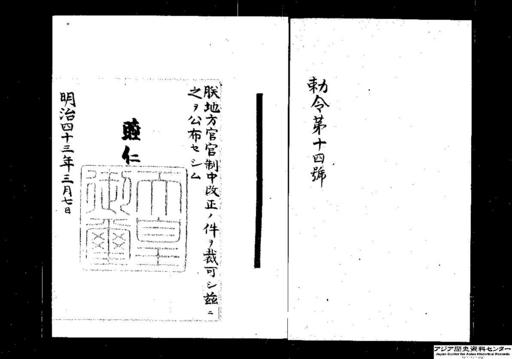 勅令第十四號
朕地方官官制中改正ノ件ヲ裁可シ茲ニ
之ヲ公布セシム
睦仁
天皇
御璽
明治四十三年三月七日
アジア歴史資料センター
Japan Center for Asian Historical Records